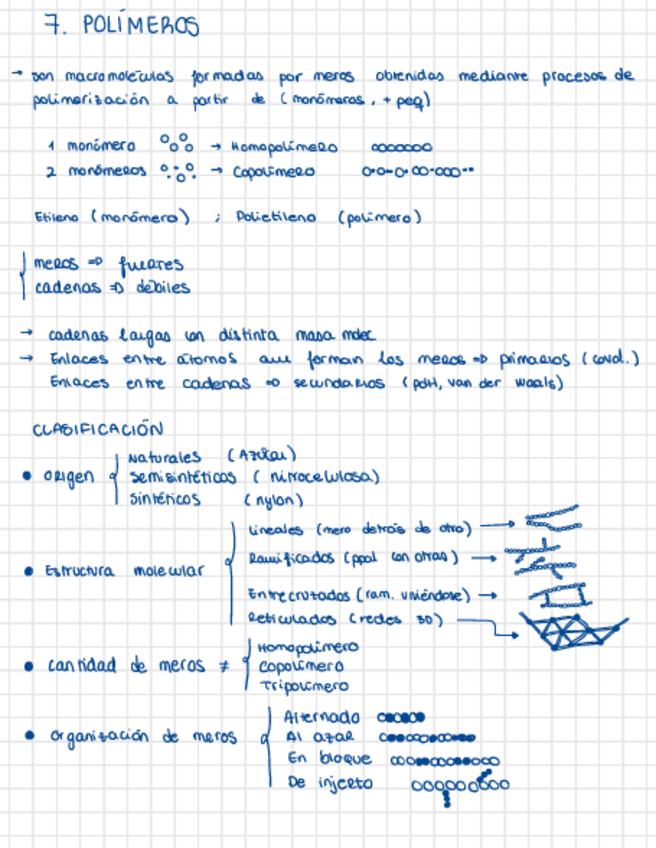 7. POLÍMEROS
→ son macromoléculas formadas por meros obtenidas mediante procesos de
polimerización a partir de (monómeros, + peq)
1 monómero → Homopolímero
2 monómeros → Copolímero
Etileno (monómero) ; Polietileno (polímero)
meros => fuertes
cadenas => débiles
→ cadenas largas con distinta masa molec
→ Enlaces entre átomos que forman los meros => primarios (coval.)
Enlaces entre cadenas => secundarios (pdH, van der waals)
CLASIFICACIÓN
• origen
Naturales (Azúcar)
Semisintéticos (nitrocelulosa)
Sintéticos (nylon)
• Estructura molecular
Lineales (mero detrás de otro) →
Ramificados (ppal con otras) →
Entrecruzados (ram. uniéndose) →
Reticulados (redes 3D)
• cantidad de meros ≠
Homopolímero
Copolímero
Tripolímero
• organización de meros
Alternado
Al azar
En bloque
De injerto